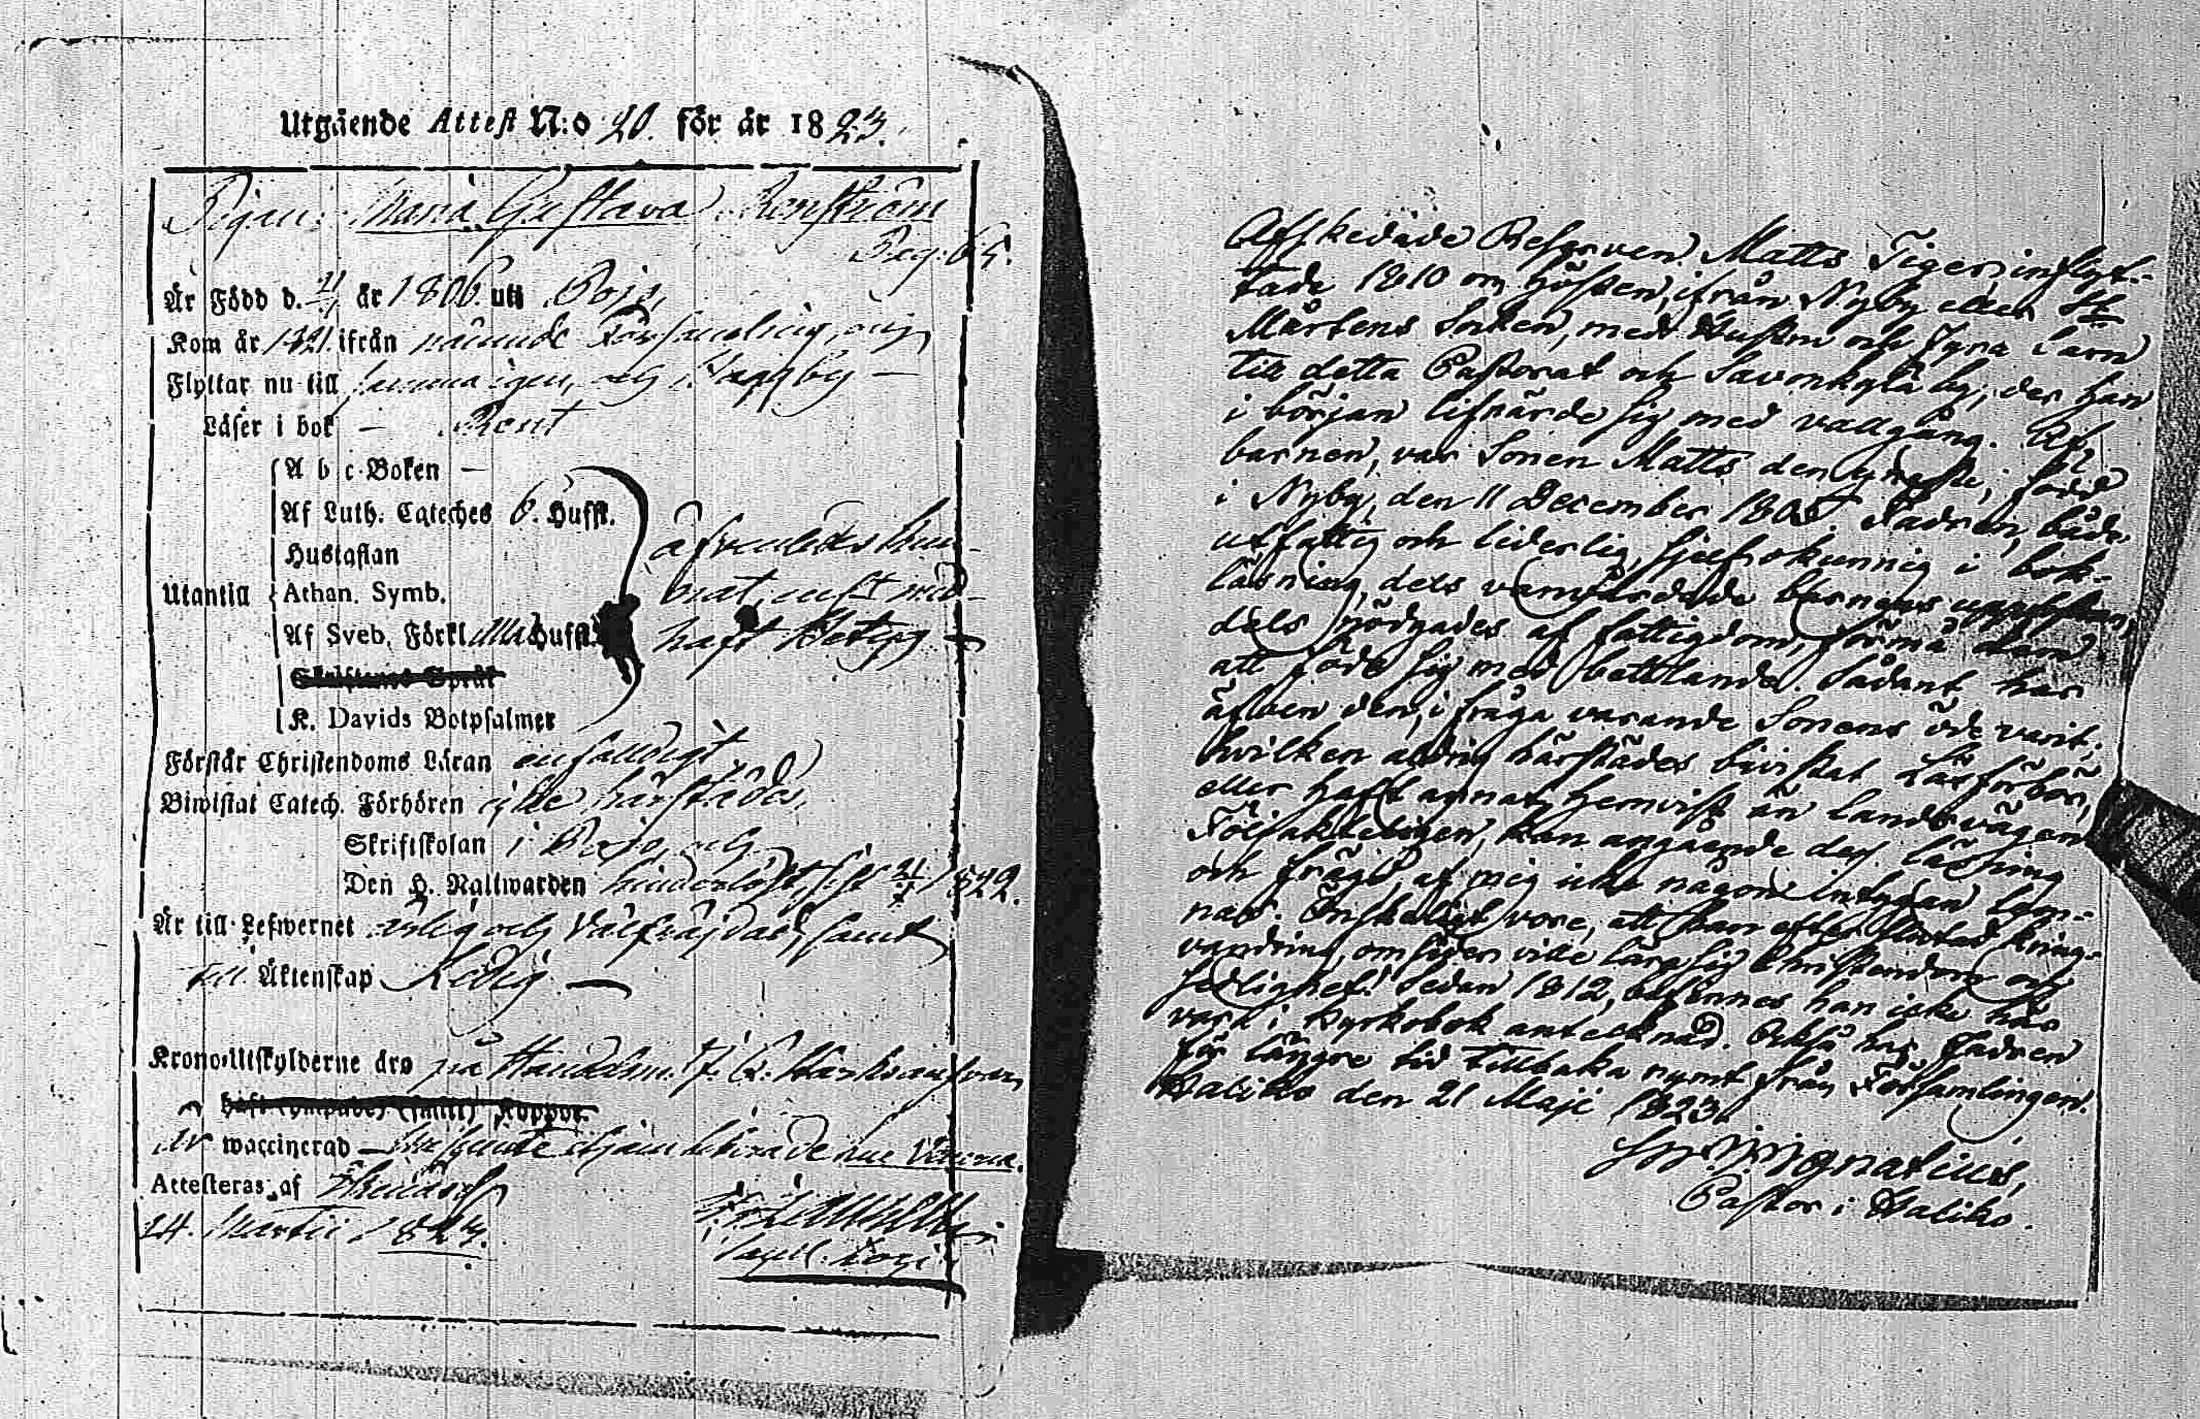 Utgående Attest N:o 20. för år 1823.
Pigan Maria Gustava Renström
Pag. 65.
Är Född d. 11/1 år 1806. uti Pojo,
Kom år 1821 ifrån nämnde Församling, och
Flyttar nu till samma igen, och by —
Läser i bok — Rent
A b c-Boken —
Af Luth. Cateches 6. Hufst.
Hustaflan
Utantill Athan. Symb.
Af Sveb. Förkl. Hufst.
Skriftenes Språk
K. Davids Botpsalmer
haft Betyg
Förstår Christendoms Läran enfaldigt,
Biwistat Catech. Förhören härstädes,
Skriftskolan i Pojo, och
Den H. Nattwarden sist 1822.
Är till Lefwernet ärlig och välfräjdad, samt
till Äktenskap Ledig. —
Kronoutskylderne äro på
haft (hmpade) (sjelf) Koppor
är waccinerad —
Attesteras af
14. Martii 1823.
Afskedade Reserven Matts Tiger, inflyt-
tade 1810 om hösten, ifrån Nyby eller St
Mårtens Socken, med Hustru och fyra barn
till detta Pastorat och Savonkylä by, der han
i början lifnärde sig med vallgång. Af
barnen, var Sonen Matts den yngste, född
i Nyby, den 11 December 1805. Fadren, både
utfattig och liderlig, sjelf okunnig i bok-
läsning, dels vanvårdade barnens uppfostran,
dels nödgades af fattigdom, förmå dem
att föda sig med bettlande. Sådant har
äfven den, i fråga varande Sonens öde varit,
hvilken aldrig härstädes bivistat Läsförhör,
eller haft annat hemvist än landsvägen.
Följakteligen, kan angående dess läsning
och frägd, af mig icke någon intygan lem-
nas. Önskeligt vore, att han efter slutad kring-
vandring, omsider ville lära sig Christendom och
sedlighet! Sedan 1812, befinnes han icke här
vara i Kyrkobok antecknad. Också har Fadren
för längre tid tillbaka rymt från Församlingen.
Haliko den 21 Maji 1823.
Ignatius,
Pastor i Haliko.